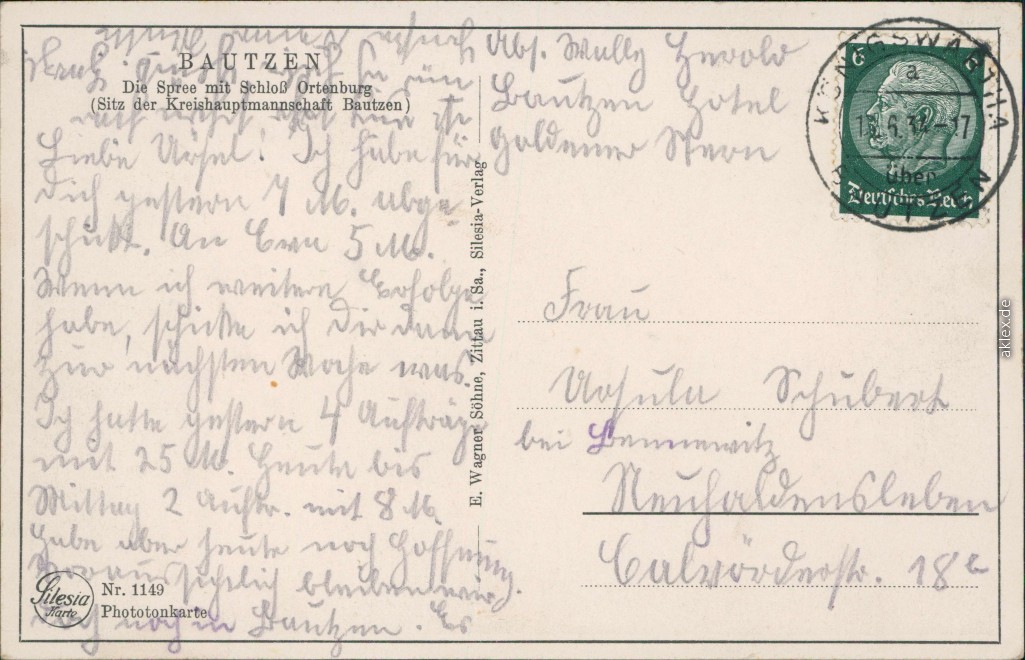 BAUTZEN
Die Spree mit Schloß Ortenburg
(Sitz der Kreishauptmannschaft Bautzen)
Liebe Ursel! Ich habe für
Dich gestern 7 M. abge
schickt. An Eva 5 M.
Wenn ich weitere Erfolge
habe, schicke ich Dir dann
zur nächsten Woche was.
Ich hatte gestern 4 Aufträge
mit 25 M. Heute bis
Mittag 2 Auftr. mit 8 M.
Habe aber heute noch Hoffnung.
Voraussichtlich bleiben wir
noch in Bautzen. Es
Silesia
Karte
Nr. 1149
Phototonkarte
E. Wagner Söhne, Zittau i. Sa., Silesia-Verlag
Abs. Willy Herold
Bautzen Hotel
Goldener Stern
6
Deutsches Reich
KÖNIGSWARTHA
a
6.34-17
über
BAUTZEN
Frau
Ursula Schubert
bei Bennewitz
Neuhaldensleben
Calvörderstr. 18c
aklex.de